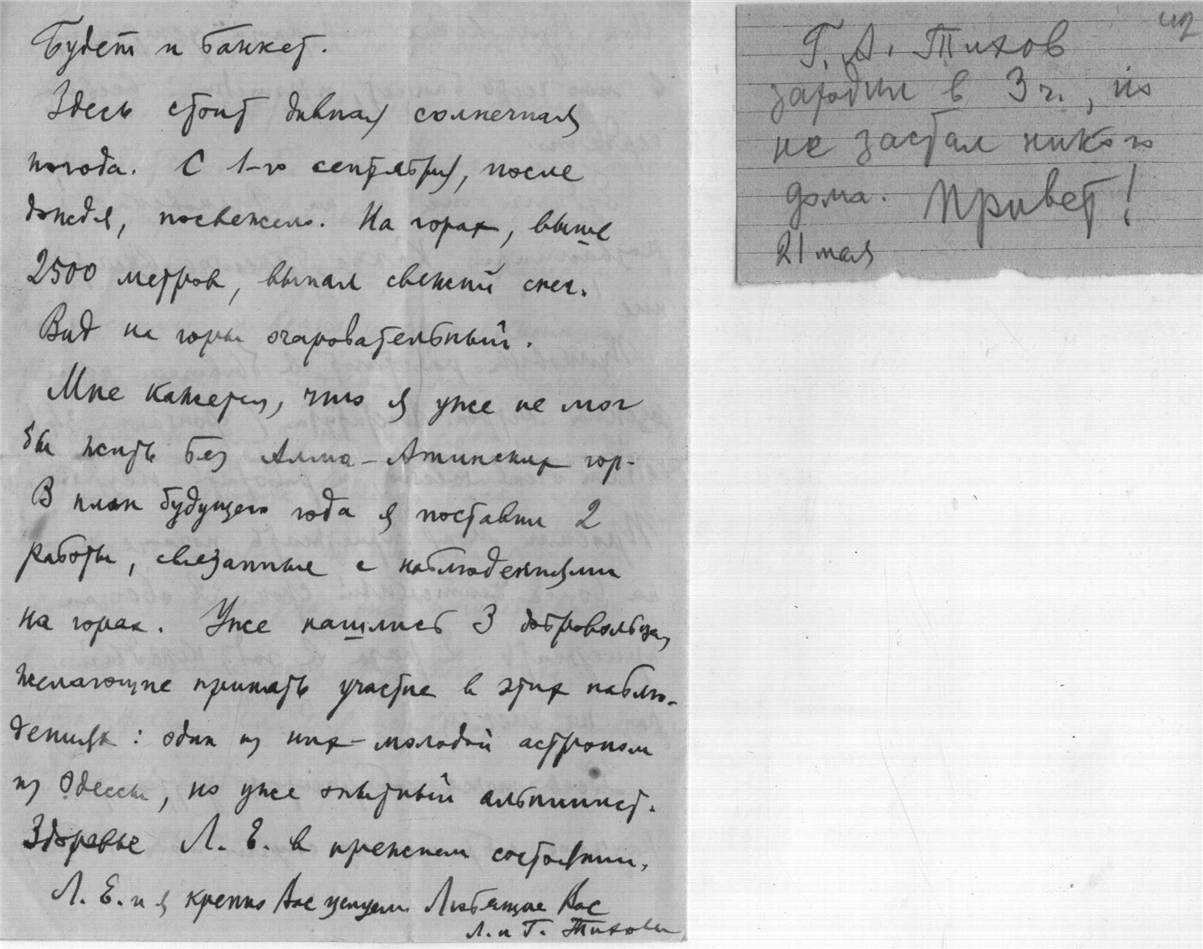 Будет и банкет.
Здесь стоит дивная солнечная
погода. С 1-го сентября, после
дождя, посвежело. На горах, выше
2500 метров, выпал свежий снег.
Вид на горы очаровательный.
Мне кажется, что я уже не мог
бы жить без Алма-Атинских гор.
В план будущего года я поставил 2
работы, связанные с наблюдениями
на горах. Уже нашлись 3 добровольца,
желающие принять участие в этих наблю-
дениях: один из них – молодой астроном
из Одессы, но уже опытный альпинист.
Здоровье Л. Е. в прежнем состоянии.
Л. Е. и я крепко Вас целуем. Любящие Вас
Л. и Г. Тиховы
Г. А. Тихов
заходил в 3 ч., но
не застал никого
дома. Привет!
21 мая